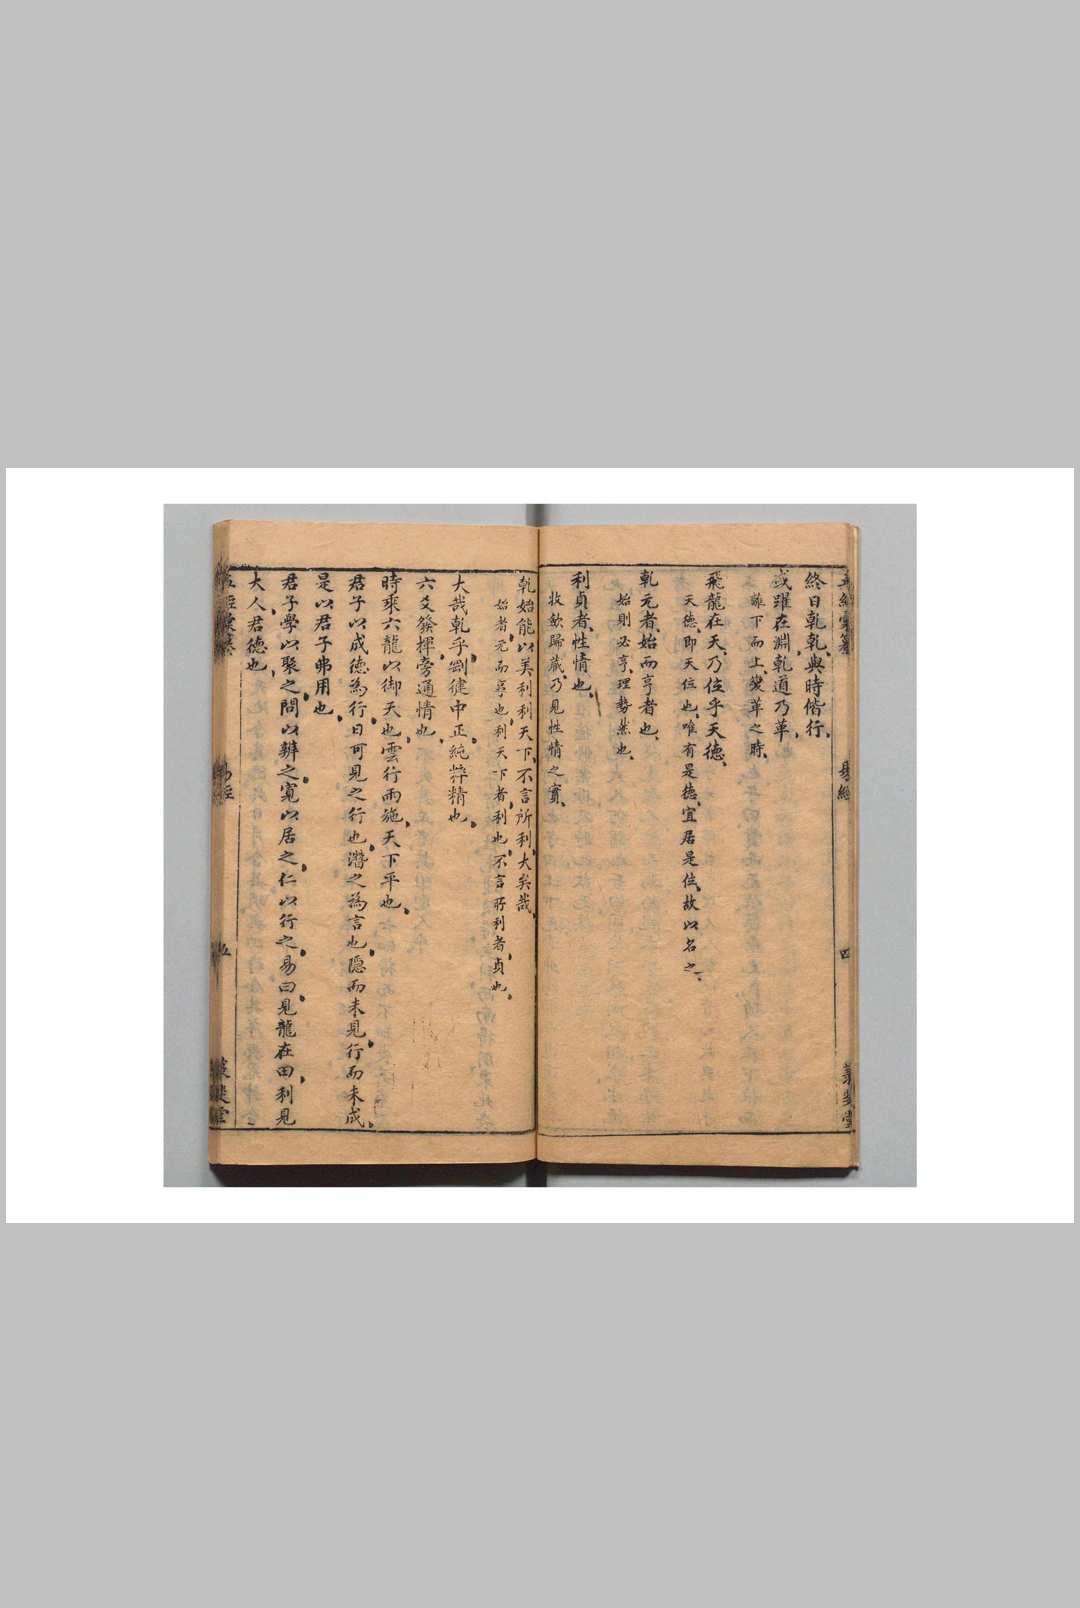 終日乾乾與時偕行
或躍在淵乾道乃革
離下而上變革之時
飛龍在天乃位乎天德
天德即天位也唯有是德宜居是位故以名之
乾元者始而亨者也
始則必亨理勢然也
利貞者性情也
收斂歸藏乃見性情之實
乾始能以美利利天下不言所利大矣哉
始者元而亨也利天下者利也不言所利者貞也
大哉乾乎剛健中正純粹精也
六爻發揮旁通情也
時乘六龍以御天也雲行雨施天下平也
君子以成德為行日可見之行也潛之為言也隱而未見行而未成
是以君子弗用也
君子學以聚之問以辨之寬以居之仁以行之易曰見龍在田利見
大人君德也
易經
五